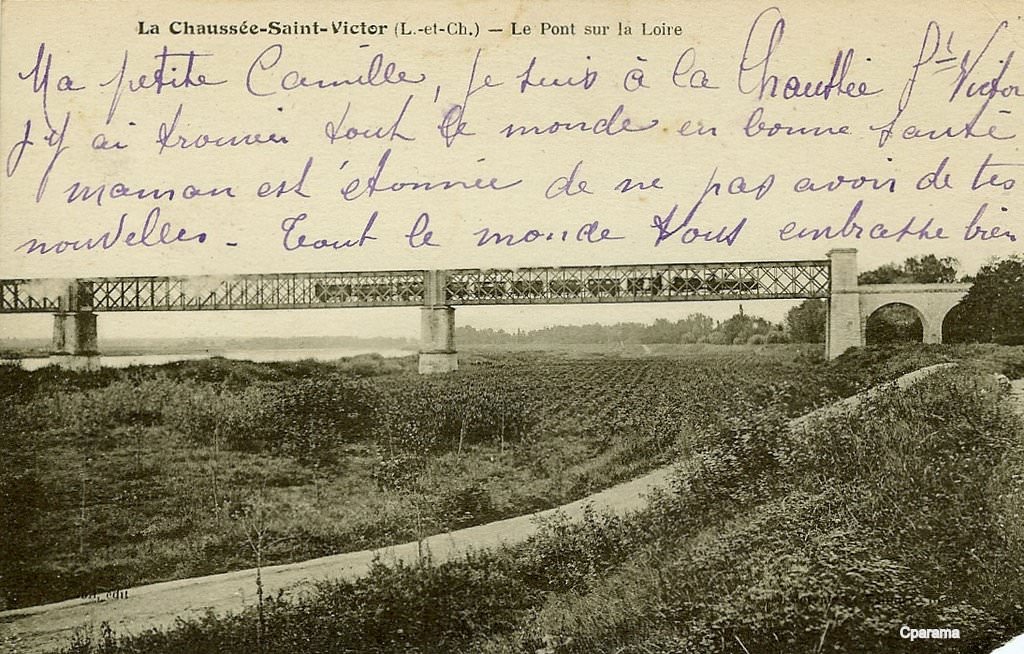 La Chaussée-Saint-Victor (L.-et-Ch.) — Le Pont sur la Loire
Ma petite Camille, je suis à la Chaussée St Victor
j'y ai trouver tout le monde en bonne santé
maman est étonnée de ne pas avoir de tes
nouvelles - Tout le monde vous embrasse bien
édit
Cparama